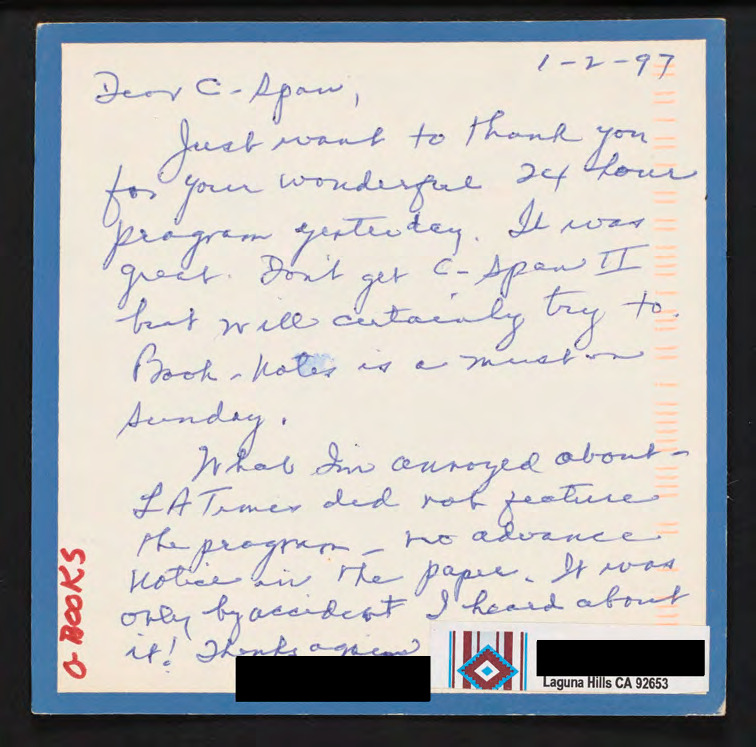 1-2-97
Dear C-Span,
Just want to thank you
for your wonderful 24 hour
program yesterday. It was
great. Don't get C-Span II
but will certainly try to.
Book-notes is a must on
Sunday.
What I'm annoyed about-
LA Times did not feature
the program - no advance
notice in the paper. It was
only by accident I heard about
it! Thanks again
Laguna Hills CA 92653
BOOKS